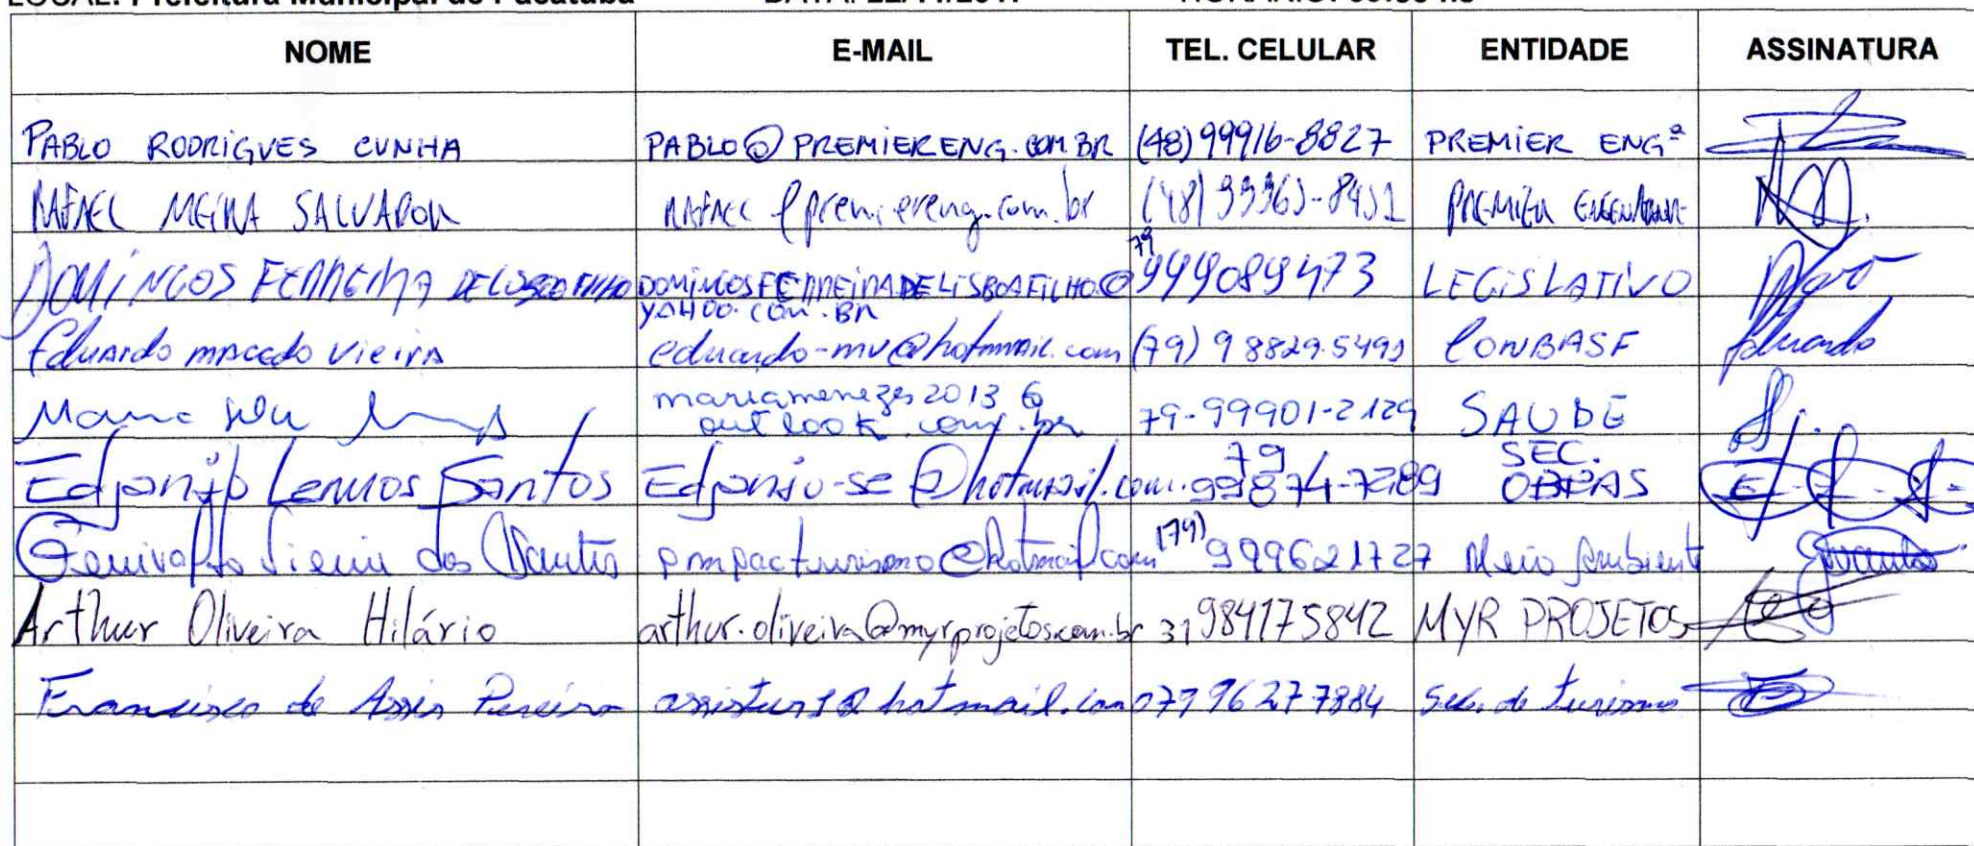 LOCAL: Prefeitura Municipal de Pacatuba DATA: 22/11/2017 HORÁRIO:
NOME E-MAIL TEL. CELULAR ENTIDADE ASSINATURA
PABLO RODRIGUES CUNHA PABLO@PREMIERENG.COM.BR (48)99916-8827 PREMIER ENGª
RAFAEL MEIRA SALVADOR RAFAEL@premiereng.com.br PREMIER
DOMINGOS FERREIRA DE LISBOA FILHO DOMINGOSFERREIRADELISBOAFILHO@ 79 999089473 LEGISLATIVO
YAHOO.COM.BR
Eduardo macedo Vieira eduardo-mv@hotmail.com (79) 98829.5491 CONBASF Eduardo
mariamenezes2013@
outlook.com.br 79-99901-2129 SAUDE
Edjanio Lemos Santos Edjanio-se@hotmail.com. 79 99874-7289 SEC.
OBRAS
Genivaldo Vieira dos Santos pmpacturismo@hotmail.com (79) 999621727 Meio Ambiente
Arthur Oliveira Hilário arthur.oliveira@myrprojetos.com.br 31 984175842 MYR PROJETOS
Francisco de Assis Pereira assistur1@hotmail.com 079 96277884 Sec. de turismo